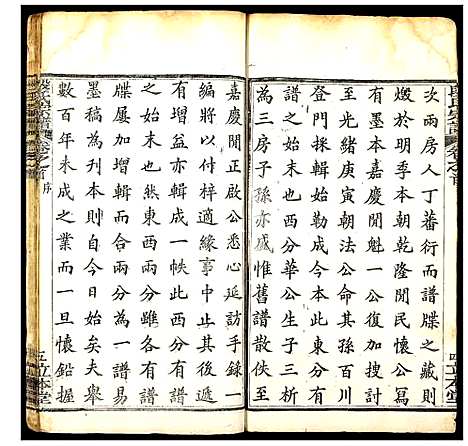 次兩房人丁蕃衍而譜牒之藏則
燬於明季本朝乾隆間民懷公寫
有墨本嘉慶間魁一公復加搜討
至光緒庚寅朝法公命其孫百川
登門採訪始勒成今本此東分有
譜之始末也西分華公生子三析
為三房子孫亦盛惟舊譜散佚至
嘉慶間正啟公悉心延訪手錄一
編將以付梓適緣事中止其後遞
有增益亦輯成一帙此西分有譜
之始末也然東西兩分雖各有譜
牒屢加增輯而合兩分為一譜易
墨稿為刊本則自今日始矣夫舉
數百年未成之業而一旦懷鉛握
序
五
立本堂
四
立本堂